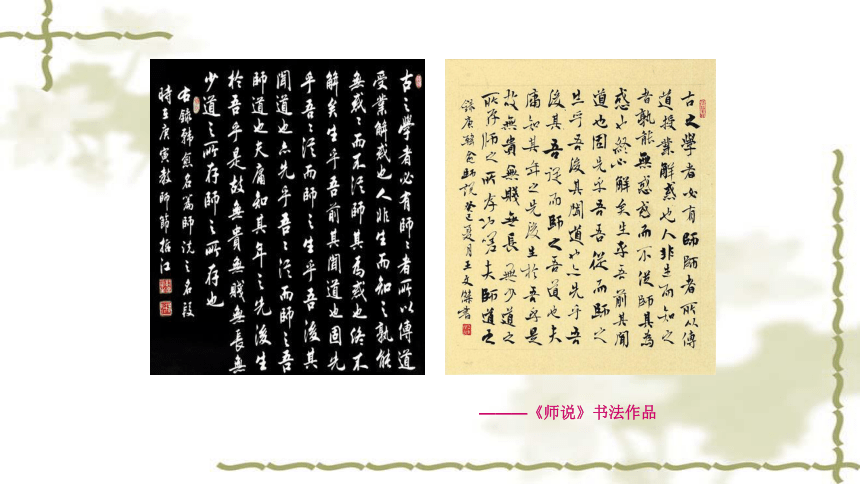 古之學者必有師〻者所以傳道
受業解惑也人非生而知之孰能
無惑〻而不從師其爲惑也終不
解矣生乎吾前其聞道也固先
乎吾〻從而師之生乎吾後其
聞道也亦先乎吾〻從而師之吾
師道也夫庸知其年之先後生
於吾乎是故無貴無賤無長無
少道之所存師之所存也
右錄韓愈名篇師說之名段
時在庚寅教師節振江
古之學者必有師師者所以傳
道授業解惑也人非生而知之
者孰能無惑惑而不從師其為
惑也終不解矣生乎吾前其聞
道也固先乎吾吾從而師之
生乎吾後其聞道也亦先乎吾
吾從而師之吾道也夫
庸知其年之先後生於吾乎是
故無貴無賤無長無少道之
所存師之所存也嗟夫師道之
錄唐韓愈師說癸巳夏月王文傑書
———《师说》书法作品